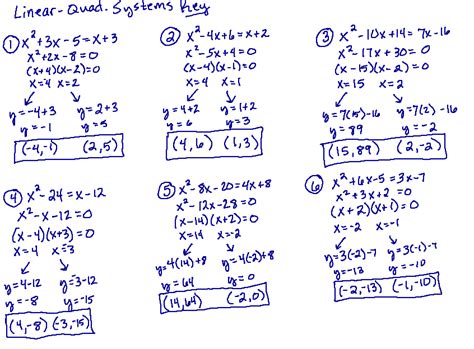 Linear-Quad. Systems Key
① x²+3x-5=x+3
x²+2x-8=0
(x+4)(x-2)=0
x=4 x=2
y=-4+3 y=2+3
y=-1 y=5
(-4,-1) (2,5)
② x²-4x+6=x+2
x²-5x+4=0
(x-4)(x-1)=0
x=4 x=1
y=4+2 y=1+2
y=6 y=3
(4,6) (1,3)
③ x²-10x+14=7x-16
x²-17x+30=0
(x-15)(x-2)=0
x=15 x=2
y=7(15)-16 y=7(2)-16
y=89 y=-2
(15,89) (2,-2)
④ x²-24=x-12
x²-x-12=0
(x-4)(x+3)=0
x=4 x=-3
y=4-12 y=-3-12
y=-8 y=-15
(4,-8) (-3,-15)
⑤ x²-8x-20=4x+8
x²-12x-28=0
(x-14)(x+2)=0
x=14 x=-2
y=4(14)+8 y=4(-2)+8
y=64 y=0
(14,64) (-2,0)
⑥ x²+6x-5=3x-7
x²+3x+2=0
(x+2)(x+1)=0
x=-2 x=-1
y=3(-2)-7 y=3(-1)-7
y=-13 y=-10
(-2,-13) (-1,-10)